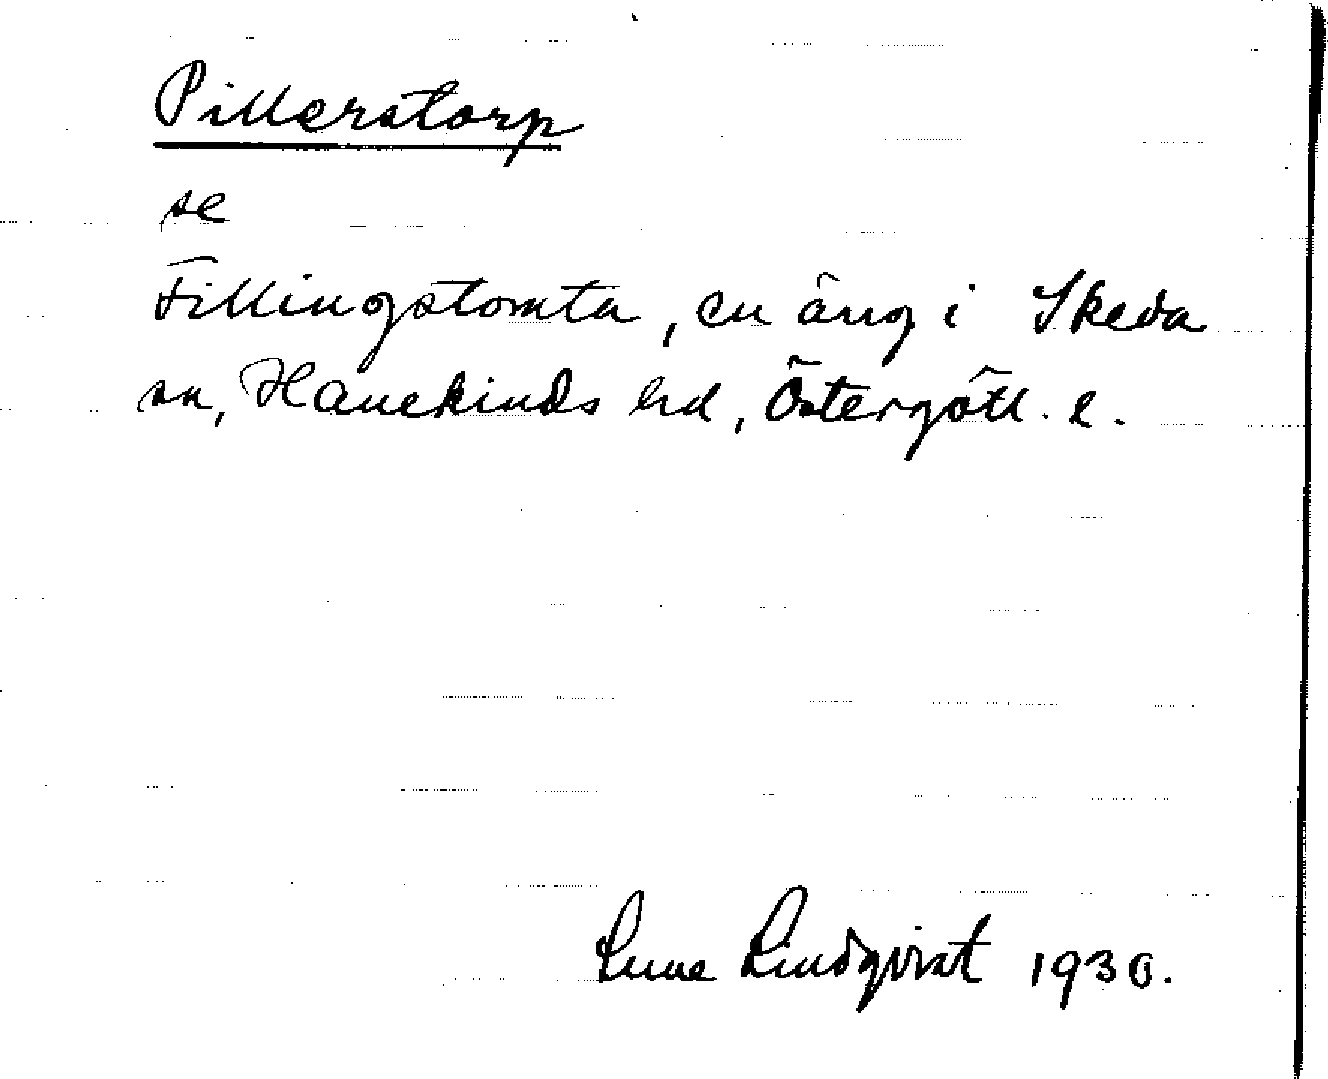 Pillerstorp
se
Fillingstomta, en äng i Skeda
sn, Hanekinds hd, Östergötl. l.
Sune Lindqvist 1930.